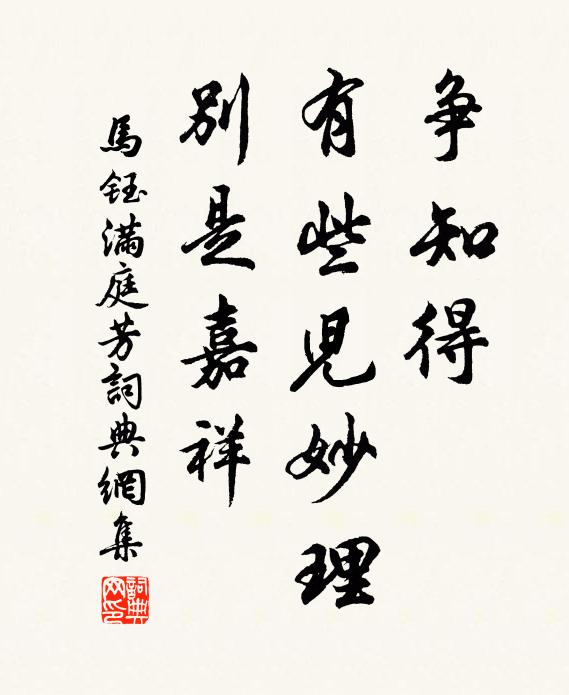 争知得
有些兒妙理
別是嘉祥
馬鈺滿庭芳詞典網集
詞典網印